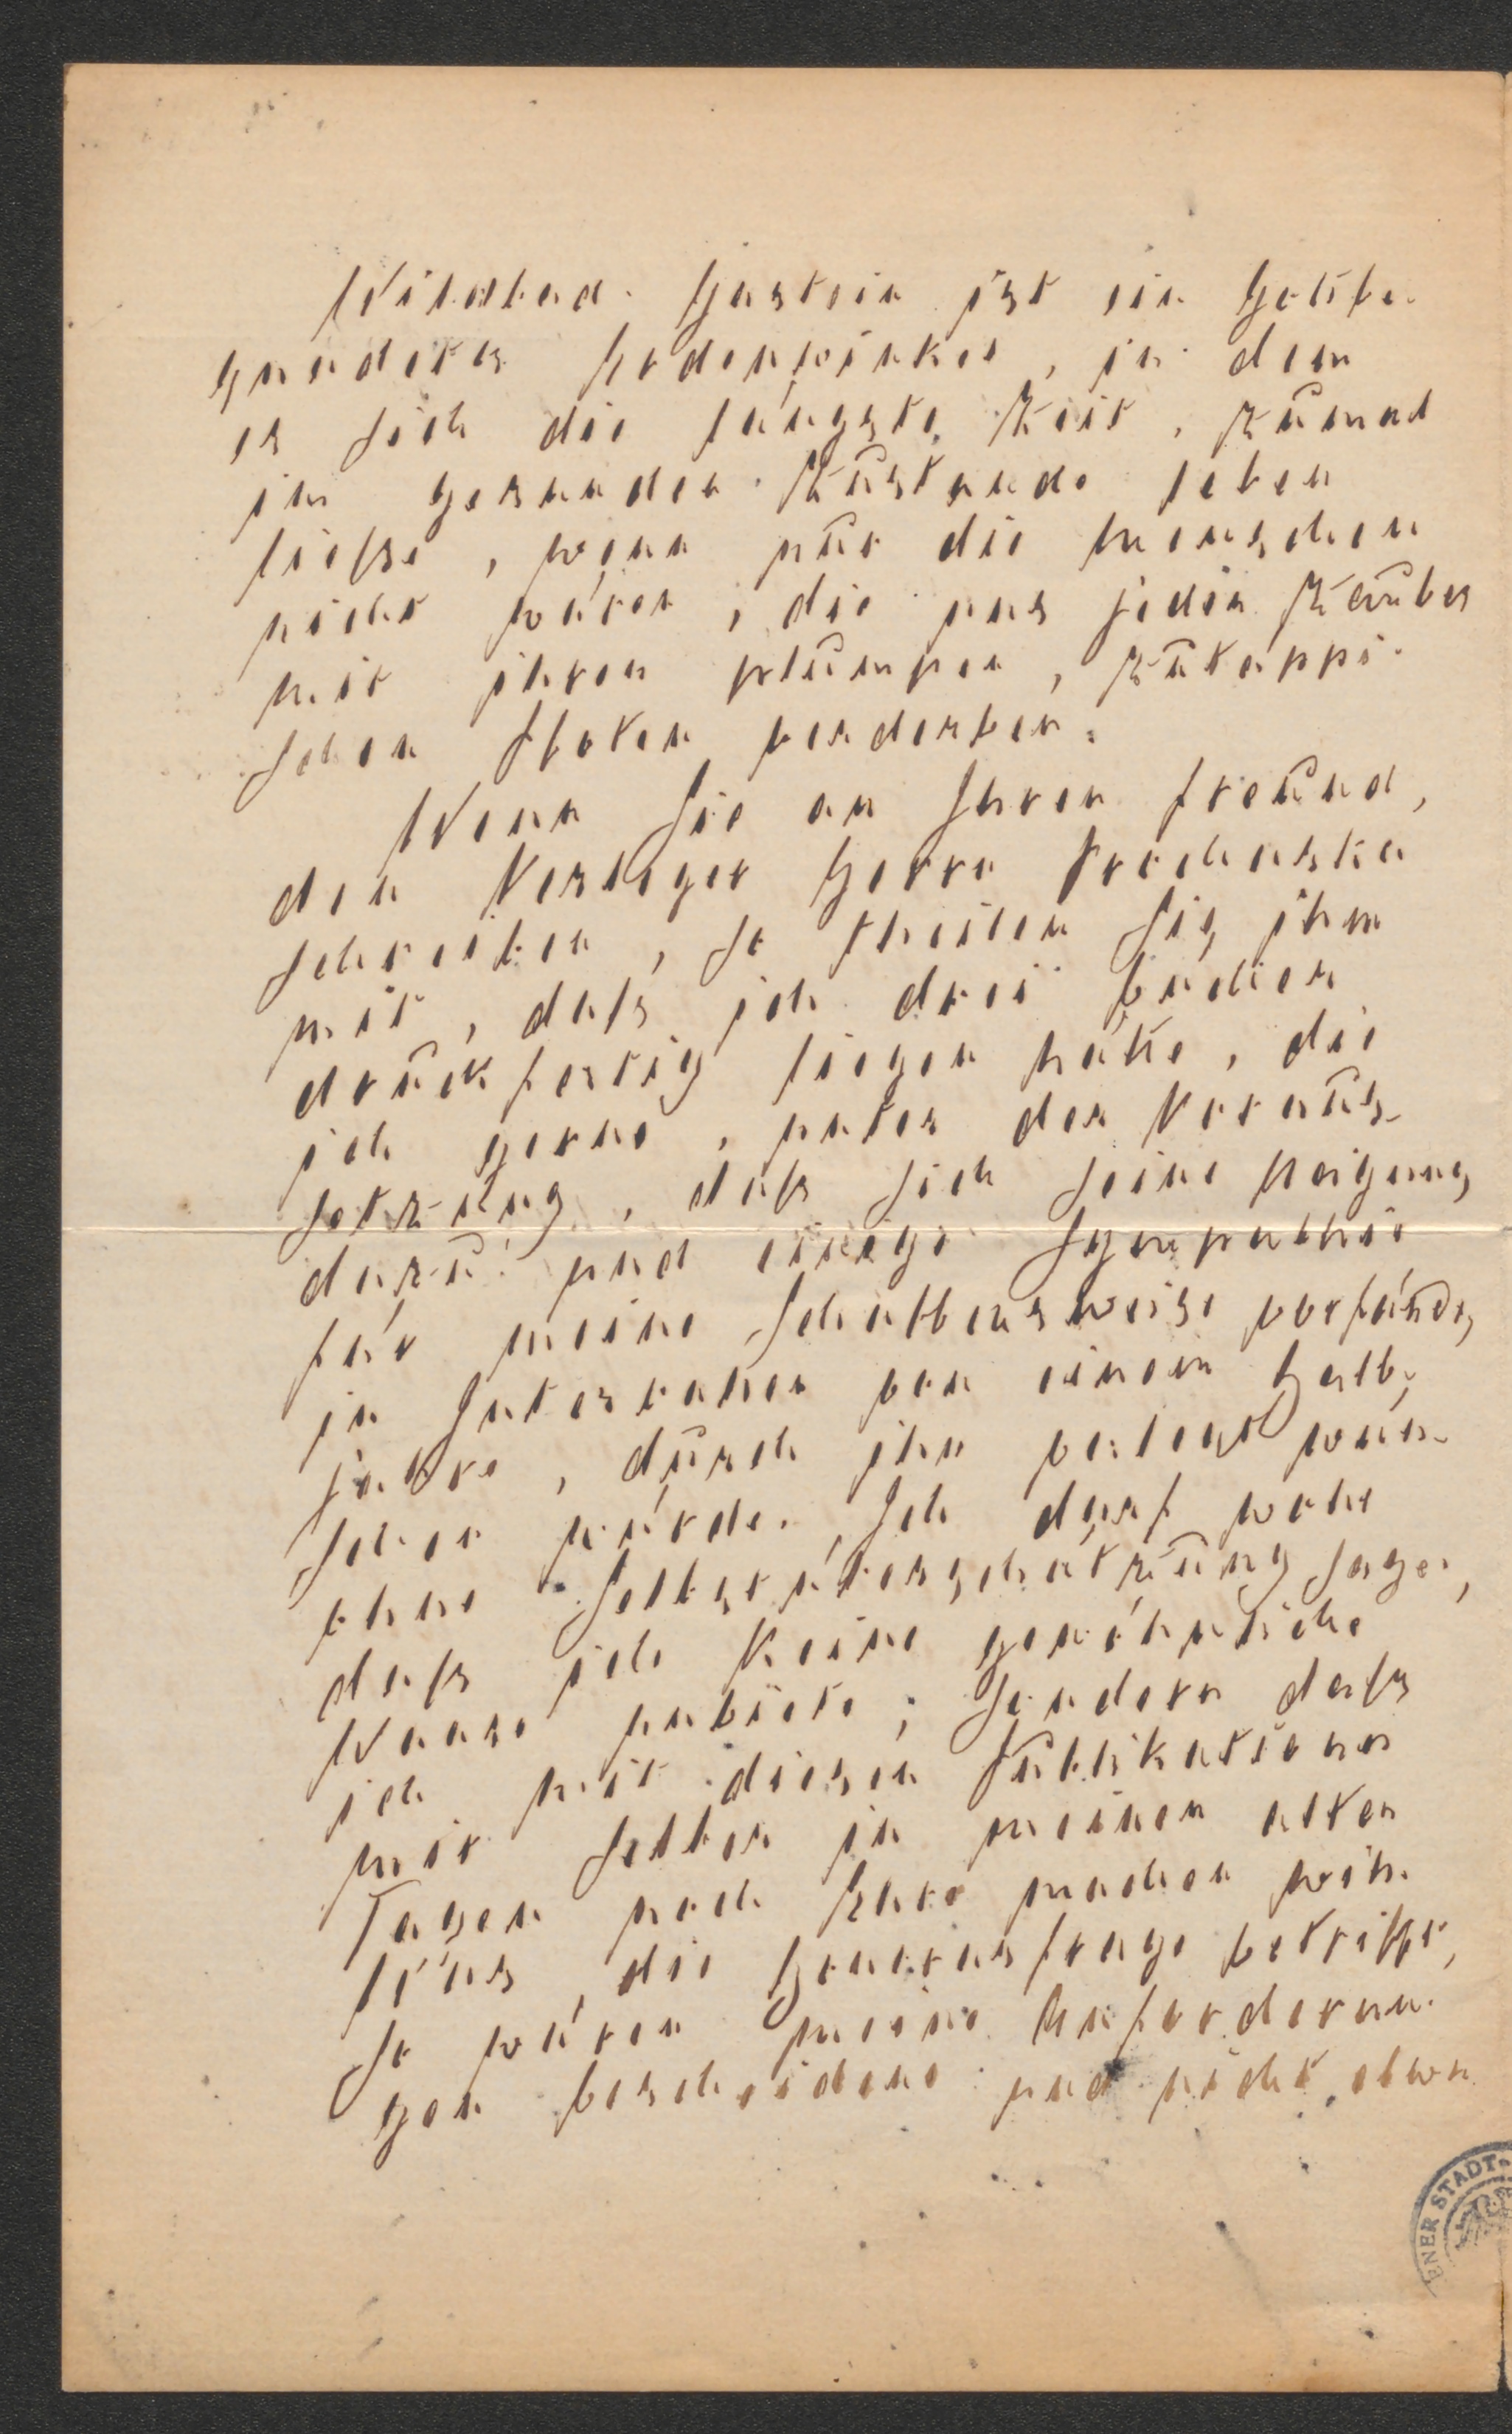 Wildbad-Gastein ist ein gottbe-
gnadeter Erdenwinkel, in dem
es sich die längste Zeit, zumal
im gesunden Zustande leben
ließe, wenn nur die Menschen
nicht wären, die uns jeden Zauber
mit ihren plumpen, zutappi-
schen Pfoten verderben.
Wenn Sie an Ihren Freund,
den Verleger Herrn Prochaska
schreiben, so theilen Sie ihm
mit, daß ich drei Bücher
druckfertig liegen hätte, die
ich gerne, unter der Voraus-
setzung, daß sich seine Neigung
dazu und einige Sympathie
für meine Schaffensweise vorfände,
in Intervallen von einem Halb-
jahre, durch ihn verlegt wün-
schen würde. Ich darf wohl
ohne Selbstüberschätzung sagen,
daß ich keine gewöhnliche
Waare anbiete; sondern daß
ich mit diesen Publikationen
mir selber in meinen alten
Tagen noch Ehre machen will.
Was die Honorarfrage betrifft,
so wären meine Anforderun-
gen bescheidene und nicht etwa
ENER STADT-